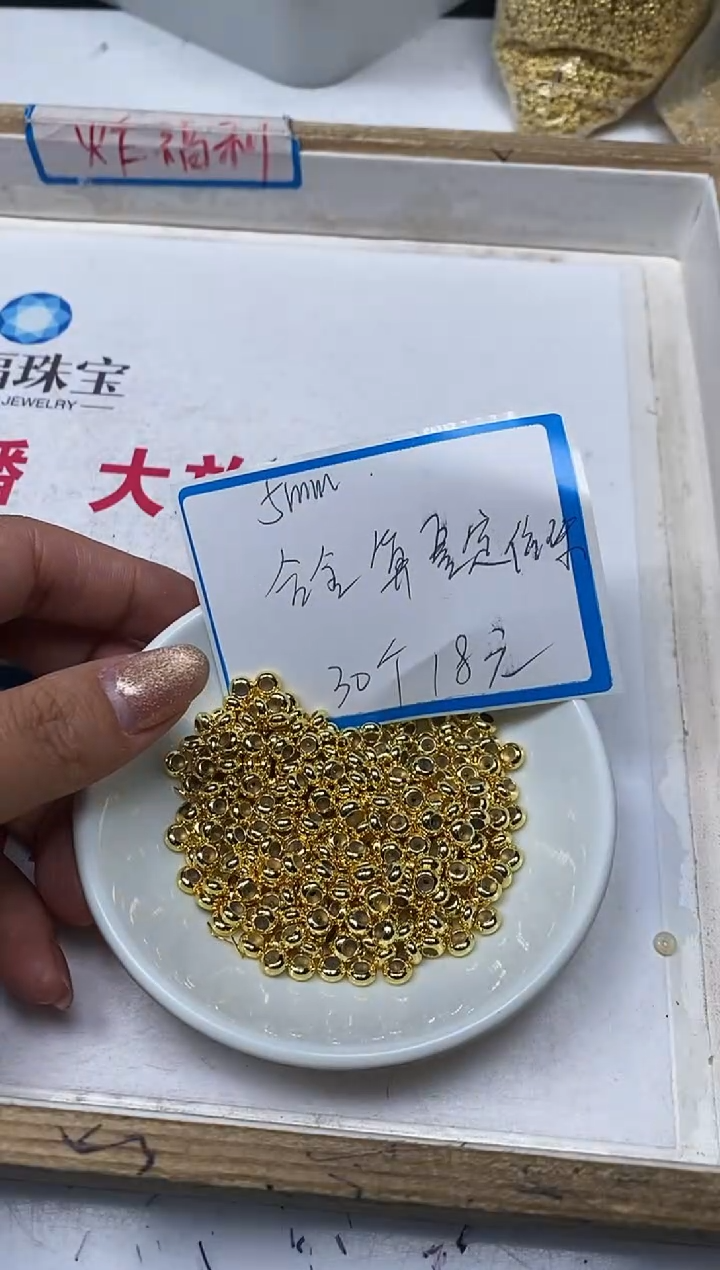 炸福利
福珠宝
JEWELRY
播 大
5mm
合金算盘定位珠
30个18元